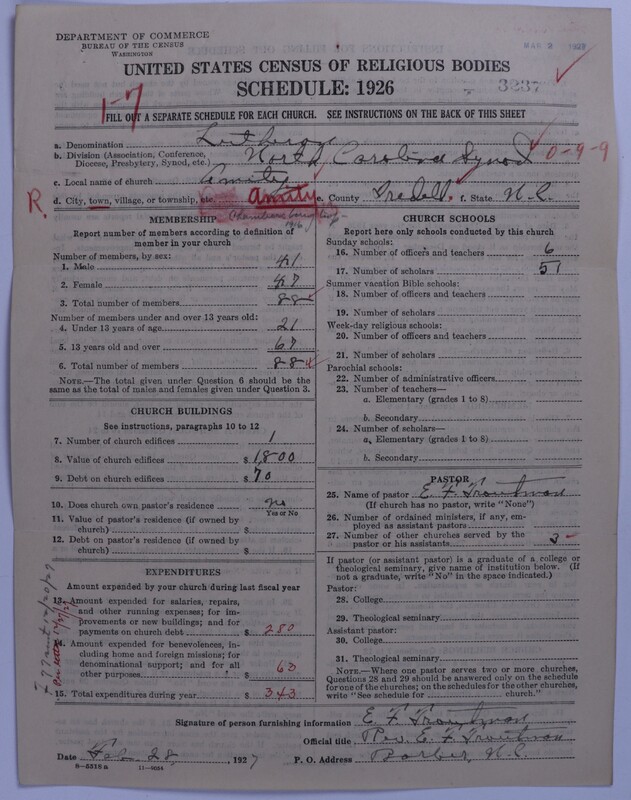 DEPARTMENT OF COMMERCE
BUREAU OF THE CENSUS
WASHINGTON
MAR 2 1927
UNITED STATES CENSUS OF RELIGIOUS BODIES
SCHEDULE: 1926
3237
1-7
FILL OUT A SEPARATE SCHEDULE FOR EACH CHURCH. SEE INSTRUCTIONS ON THE BACK OF THIS SHEET
a. Denomination Lutheran
b. Division (Association, Conference, Diocese, Presbytery, Synod, etc.) North Carolina Synod 0-9-9
c. Local name of church Amity
R. d. City, town, village, or township, etc. Amity e. County Iredell f. State N.C.
1916
MEMBERSHIP
Report number of members according to definition of member in your church
Number of members, by sex:
1. Male 41
2. Female 47
3. Total number of members 88
Number of members under and over 13 years old:
4. Under 13 years of age 21
5. 13 years old and over 67
6. Total number of members 88
NOTE.—The total given under Question 6 should be the same as the total of males and females given under Question 3.
CHURCH BUILDINGS
See instructions, paragraphs 10 to 12
7. Number of church edifices 1
8. Value of church edifices $ 1800
9. Debt on church edifices $ 70
10. Does church own pastor's residence no
Yes or No
11. Value of pastor's residence (if owned by church) $
12. Debt on pastor's residence (if owned by church) $
EXPENDITURES
Amount expended by your church during last fiscal year
13. Amount expended for salaries, repairs, and other running expenses; for improvements or new buildings; and for payments on church debt $ 280
14. Amount expended for benevolences, including home and foreign missions; for denominational support; and for all other purposes $ 63
15. Total expenditures during year $ 343
CHURCH SCHOOLS
Report here only schools conducted by this church
Sunday schools:
16. Number of officers and teachers 6
17. Number of scholars 51
Summer vacation Bible schools:
18. Number of officers and teachers
19. Number of scholars
Week-day religious schools:
20. Number of officers and teachers
21. Number of scholars
Parochial schools:
22. Number of administrative officers
23. Number of teachers—
a. Elementary (grades 1 to 8)
b. Secondary
24. Number of scholars—
a. Elementary (grades 1 to 8)
b. Secondary
PASTOR
25. Name of pastor E. F. Troutman
(If church has no pastor, write "None")
26. Number of ordained ministers, if any, employed as assistant pastors
27. Number of other churches served by the pastor or his assistants 3
If pastor (or assistant pastor) is a graduate of a college or theological seminary, give name of institution below. (If not a graduate, write "No" in the space indicated.)
Pastor:
28. College
29. Theological seminary
Assistant pastor:
30. College
31. Theological seminary
NOTE.—Where one pastor serves two or more churches, Questions 28 and 29 should be answered only on the schedule for one of the churches; on the schedules for the other churches, write "See schedule for church."
Signature of person furnishing information E. F. Troutman
Official title Rev. E. F. Troutman
Date Feb. 28, 1927 P. O. Address Barber, N.C.
8-5318a 11-9034